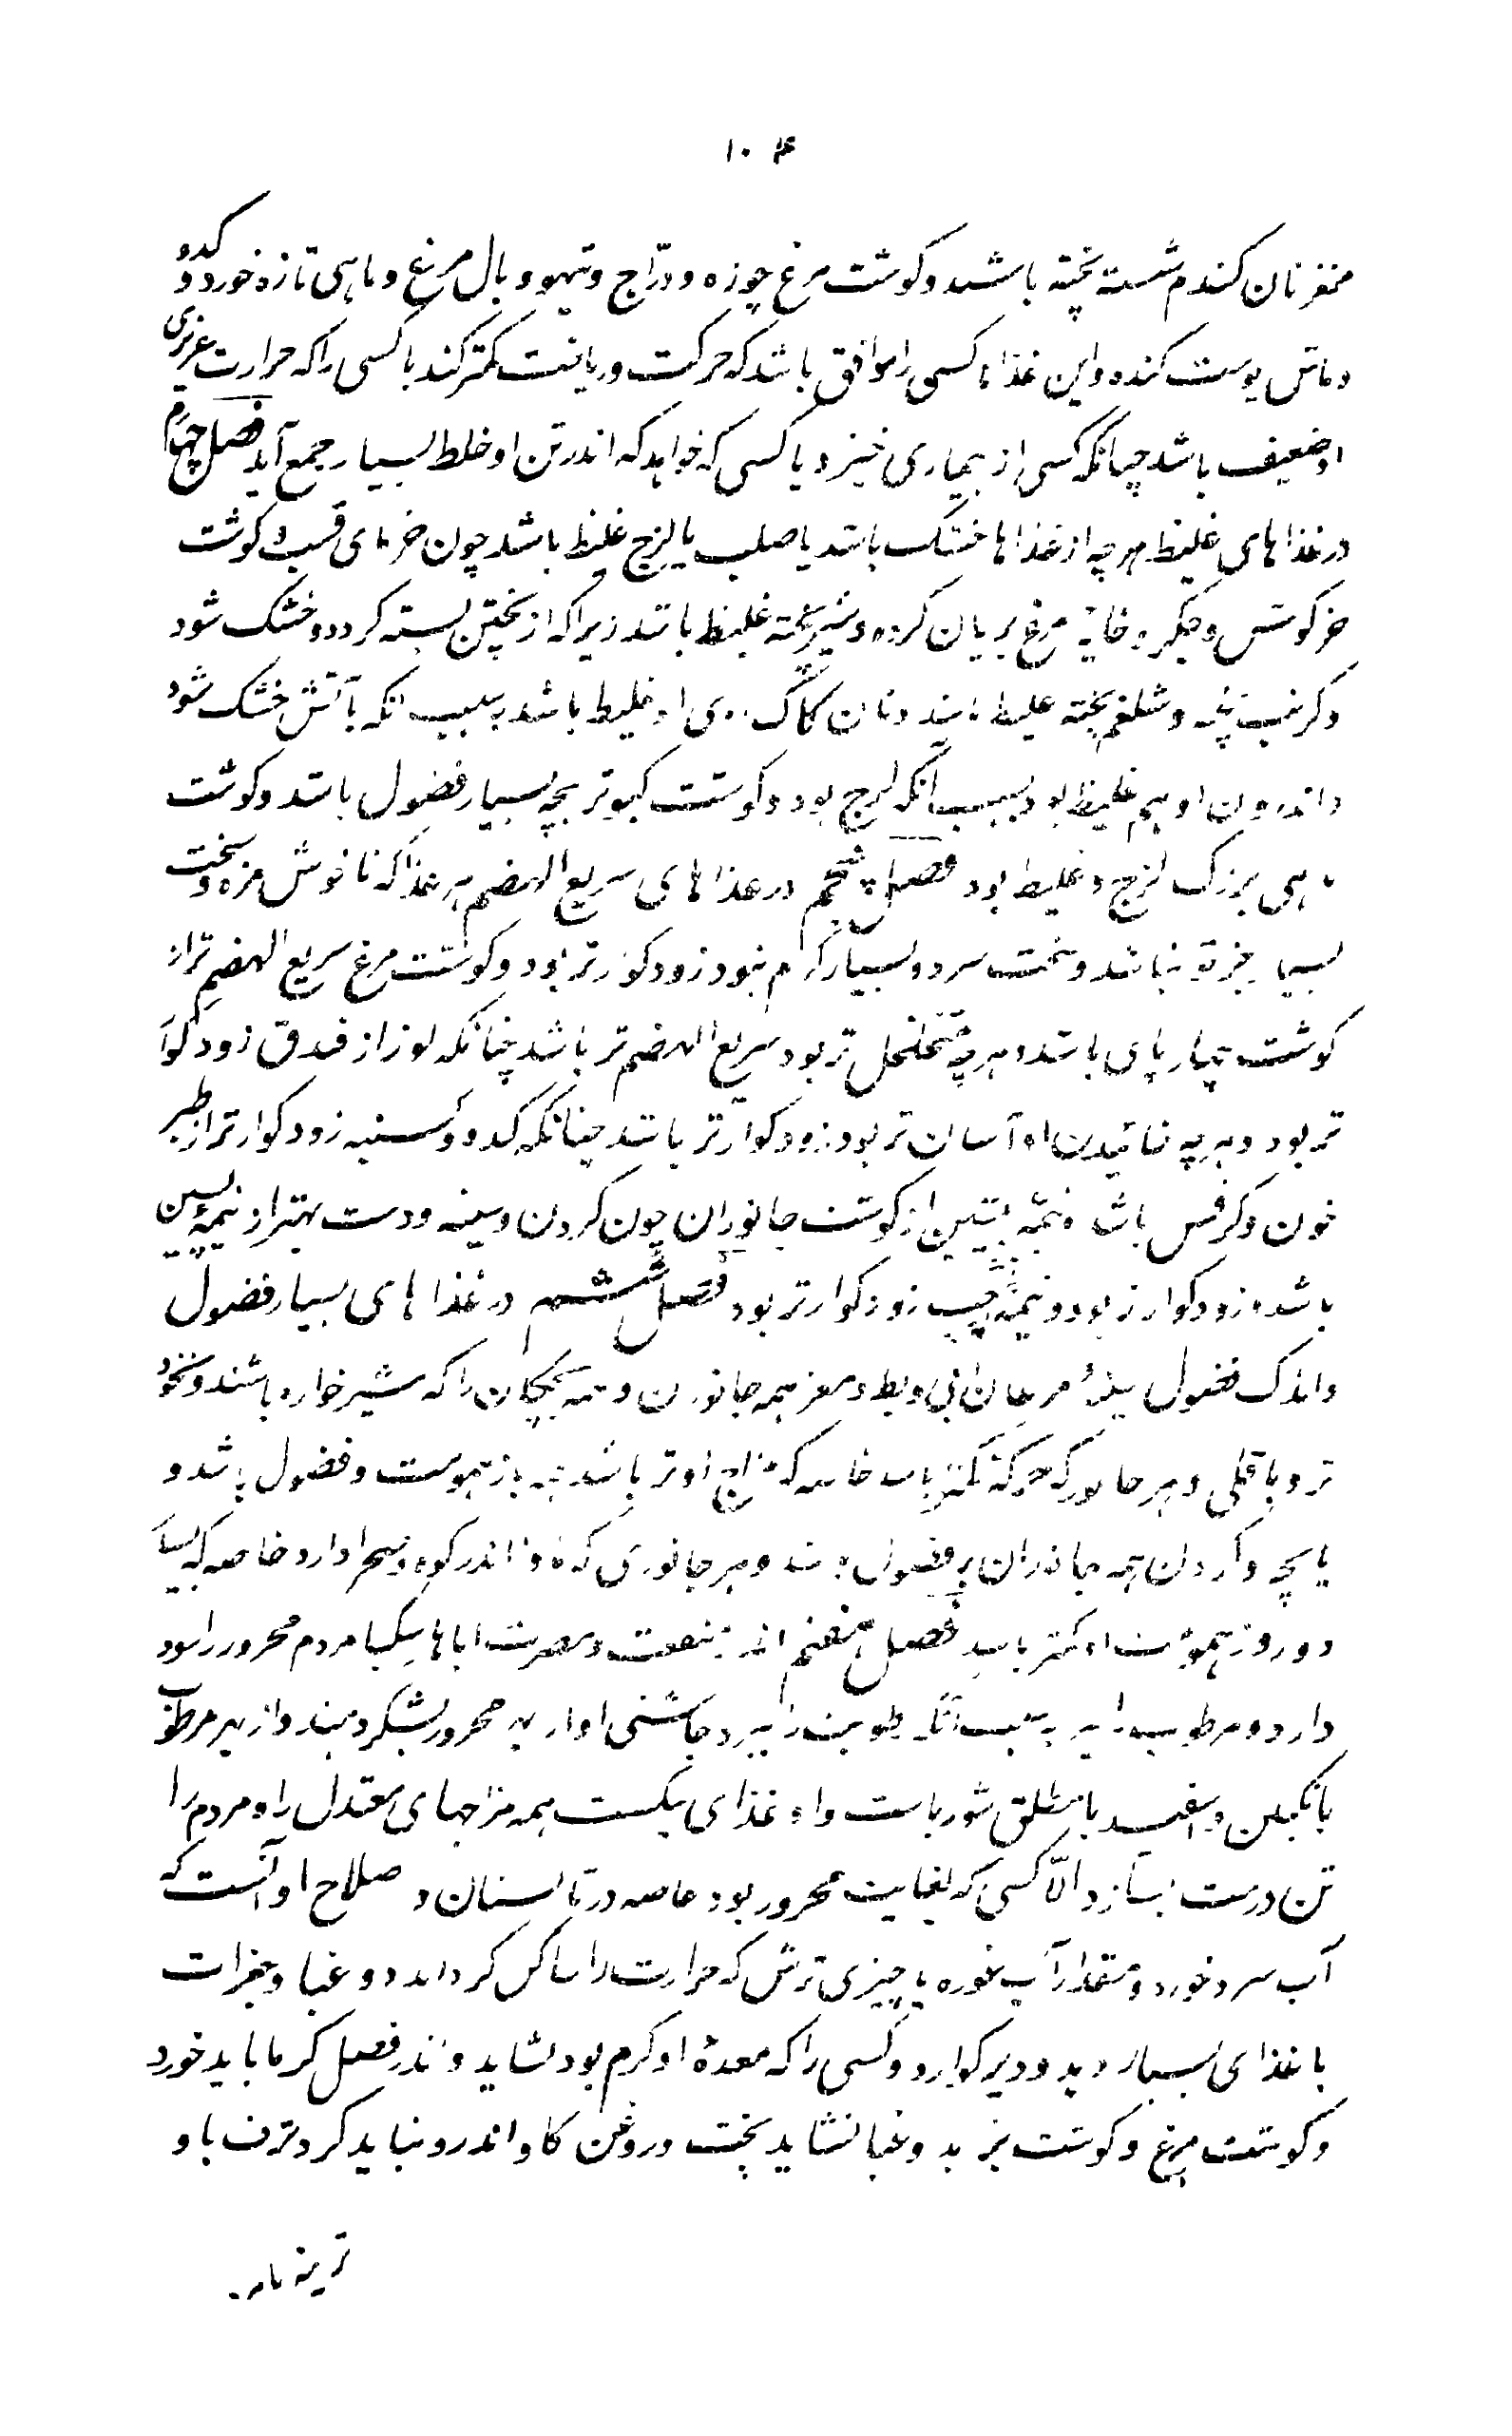 ۱۰۴
مغز نان کندم شسته پخته باشند و کوشت مرغ چوزه و درّاج و تیهو و بال مرغ و ماهی تازه خورد و کدو
و ماش پوست کنده و این غذاها کسی را موافق باشد که حرکت و ریاضت کمتر کند یا کسی را که حرارت غریزی
او ضعیف باشد چنانکه کسی از بیماری خیزد یا کسی که خواهد که اندر تن او خلط بسیار جمع آید فصل چهارم
در غذاهای غلیظ هر چه از غذاها خشک باشد یا صلب یا لزج غلیظ باشد چون خرمای قسب و کوشت
خرکوش و جکر و خایهٔ مرغ بریان کرده و شیر پخته غلیظ باشد زیرا که از پختن بسته کردد و خشک شود
و کرنب پخته و شلغم پخته غلیظ باشد و نان کاک روی او غلیظ باشد بسبب انکه بآتش خشک شود
و اندرون او هم غلیظ بود بسبب آنکه لزج بود و کوشت کبوتر بچه بسیار فضول باشد و کوشت
ماهی بزرک لزج و غلیظ بود فصل پنجم در غذاهای سریع الهضم هر غذا که ناخوش مزه و سخت
بسیار چربو نباشد و سخت سرد و بسیار کرم نبود زود کوارتر بود و کوشت مرغ سریع الهضم تر از
کوشت چهارپای باشد و هر چه متخلخل تر بود سریع الهضم تر باشد چنانکه لوز از فندق زود کوار
تر بود و هر چه خائیدن او آسان تر بود زود کوارتر باشد چنانکه کدو و سنبه زود کوارتر از طبر
خون و کرفس باشد و نیمهٔ پیشین از کوشت جانوران چون کردن و سینه و دست بهتر از نیمهٔ پسین
باشد و زود کوارتر بود و نیمهٔ چپ زود کوارتر بود فصل ششم در غذاهای بسیار فضول
و اندک فضول مرغان آبی و بط و مغز همه جانوران و همه بچکان را که شیر خواره باشند و نخود
تر و باقلی و هر جانور که حرکة کمتر باشد خاصه که مزاج او تر باشد و فضول باشد و
پایچه و کردن همه جانوران پر فضول باشد و هر جانوری که ماوا اندر کوه و صحرا دارد خاصه که بسیار
دود و فضول او کمتر باشد فصل هفتم اندر منفعت و مضرت اباها سکبا مردم محرور را سود
دارد و مرطوب را نیز بسبب آنکه رطوبت را ببرد و چاشنی او از بهر محرور بشکر دهند و از بهر مرطوب
بانکبین و اسفیدبا مطلق شورباست و او غذای نیکست همه مزاجهای معتدل را و مردم را
تن درست بسازد الّا کسی که بغایت محرور بود خاصه در تابستان و صلاح او آنست که
آب سرد خورد و مقدار آب غوره یا چیزی ترش که حرارت را ساکن کرداند دوغبا و جغرات
با غذای بسیار دهد و دیر کوارد و کسی را که معدهٔ او کرم بود شاید و اندر فصل کرما باید خورد
و کوشت مرغ و کوشت بز بدوغبا نشاید پخت و روغن کاو اندرو نباید کرد ترف با و